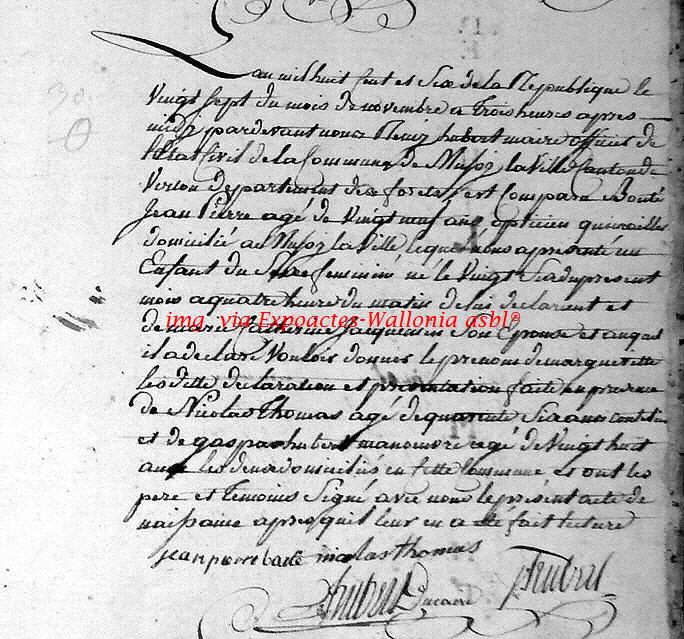 30
L'an mil huit cent et Six de la Republique le
Vingt Sept du mois de novembre a trois heures apres
midy pardevant nous Remy hubert maire officier de
l'Etat Civil de la Commune de Mussy la Ville Canton de
Virton Departement des forets est Comparu
Jean Pierre agé de Vingt neuf ans opticien quincaillier
domicilié a Mussy la Ville lequel nous a presenté un
Enfant du Sexe feminine né le Vingt Six du present
mois a quatre heure du matin de lui declarent et
de marie Catherine Jacquemin Son Epouse et auquel
il a declare Vouloir donner le prenom de margueritte
les ditte declaration et presentation faite en presence
de Nicolas Thomas agé de quarante Six ans
et de gaspar hubert manoeuvre agé de Vingt huit
ans les deux domiciliés en cette Commune Et ont les
pere et temoins Signé avec nous le present acte de
naissance apres quil leur en a eté fait lecture
jean pierre nicolas thomas
hubert hubert
img. via Expoactes-Wallonia asbl®